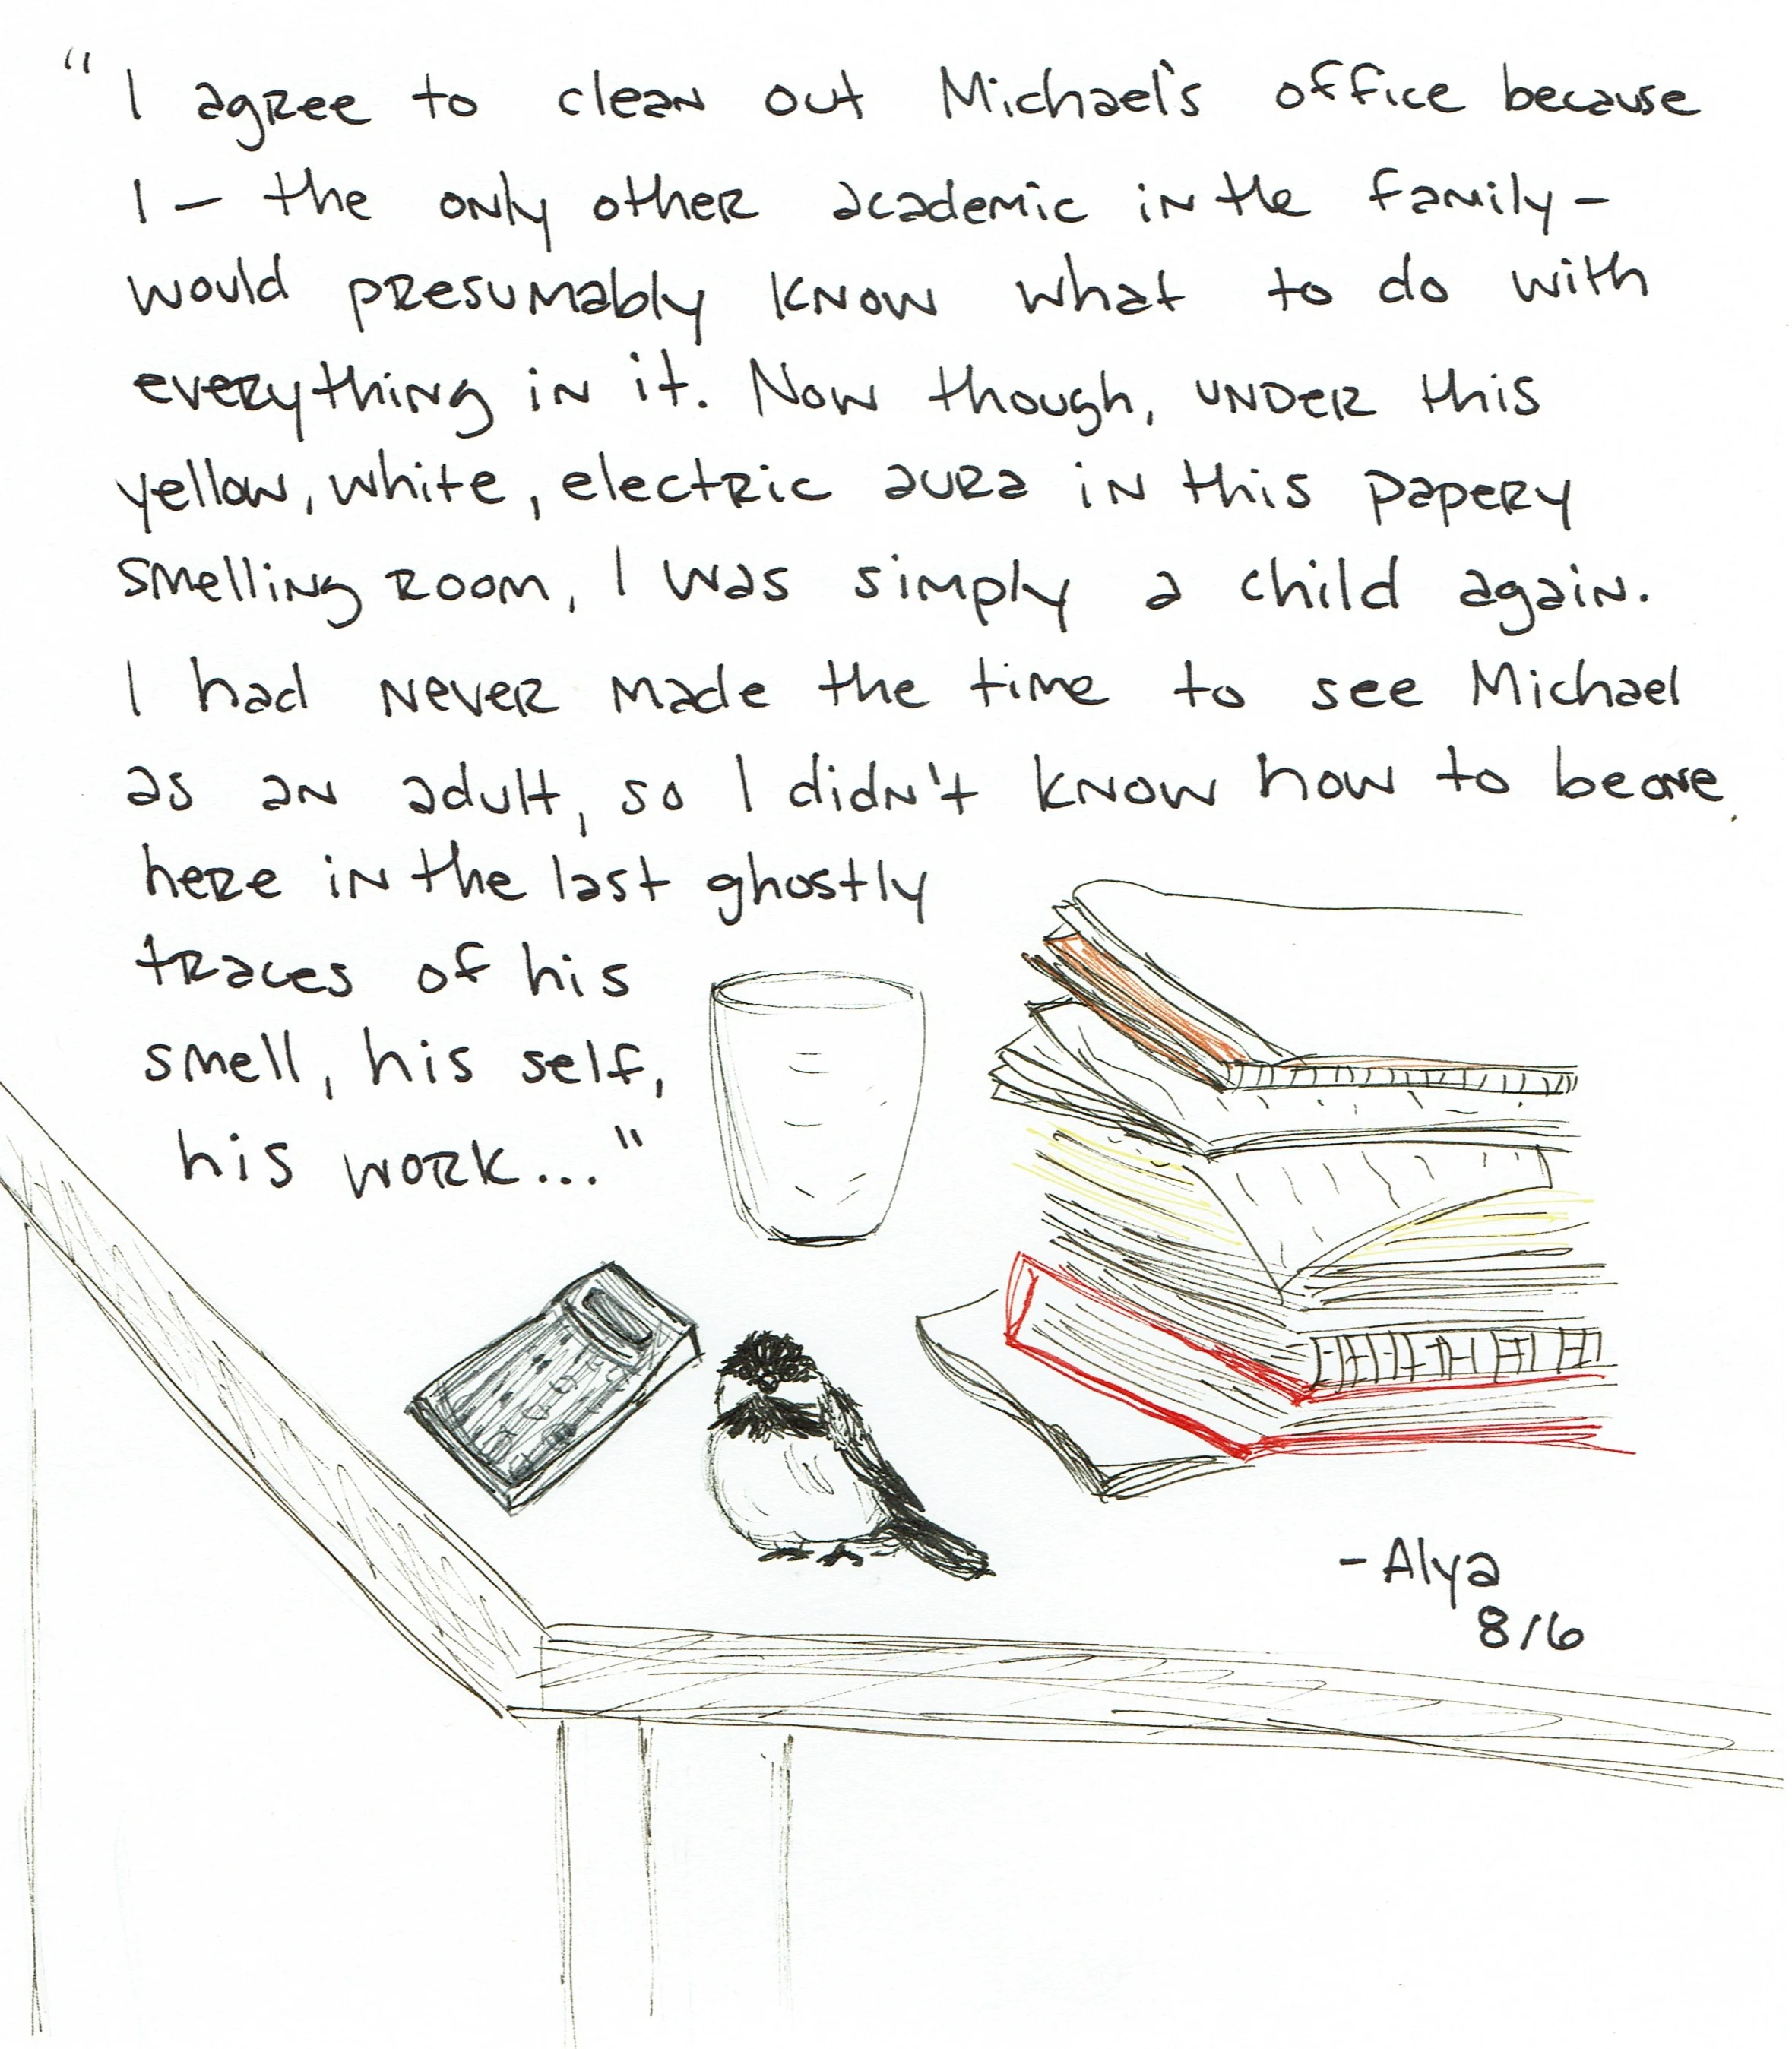 "I agree to clean out Michael's office because
I - the only other academic in the family -
would presumably know what to do with
everything in it. Now though, under this
yellow, white, electric aura in this papery
smelling room, I was simply a child again.
I had never made the time to see Michael
as an adult, so I didn't know how to be one
here in the last ghostly
traces of his
smell, his self,
his work..."
-Alya
8/6